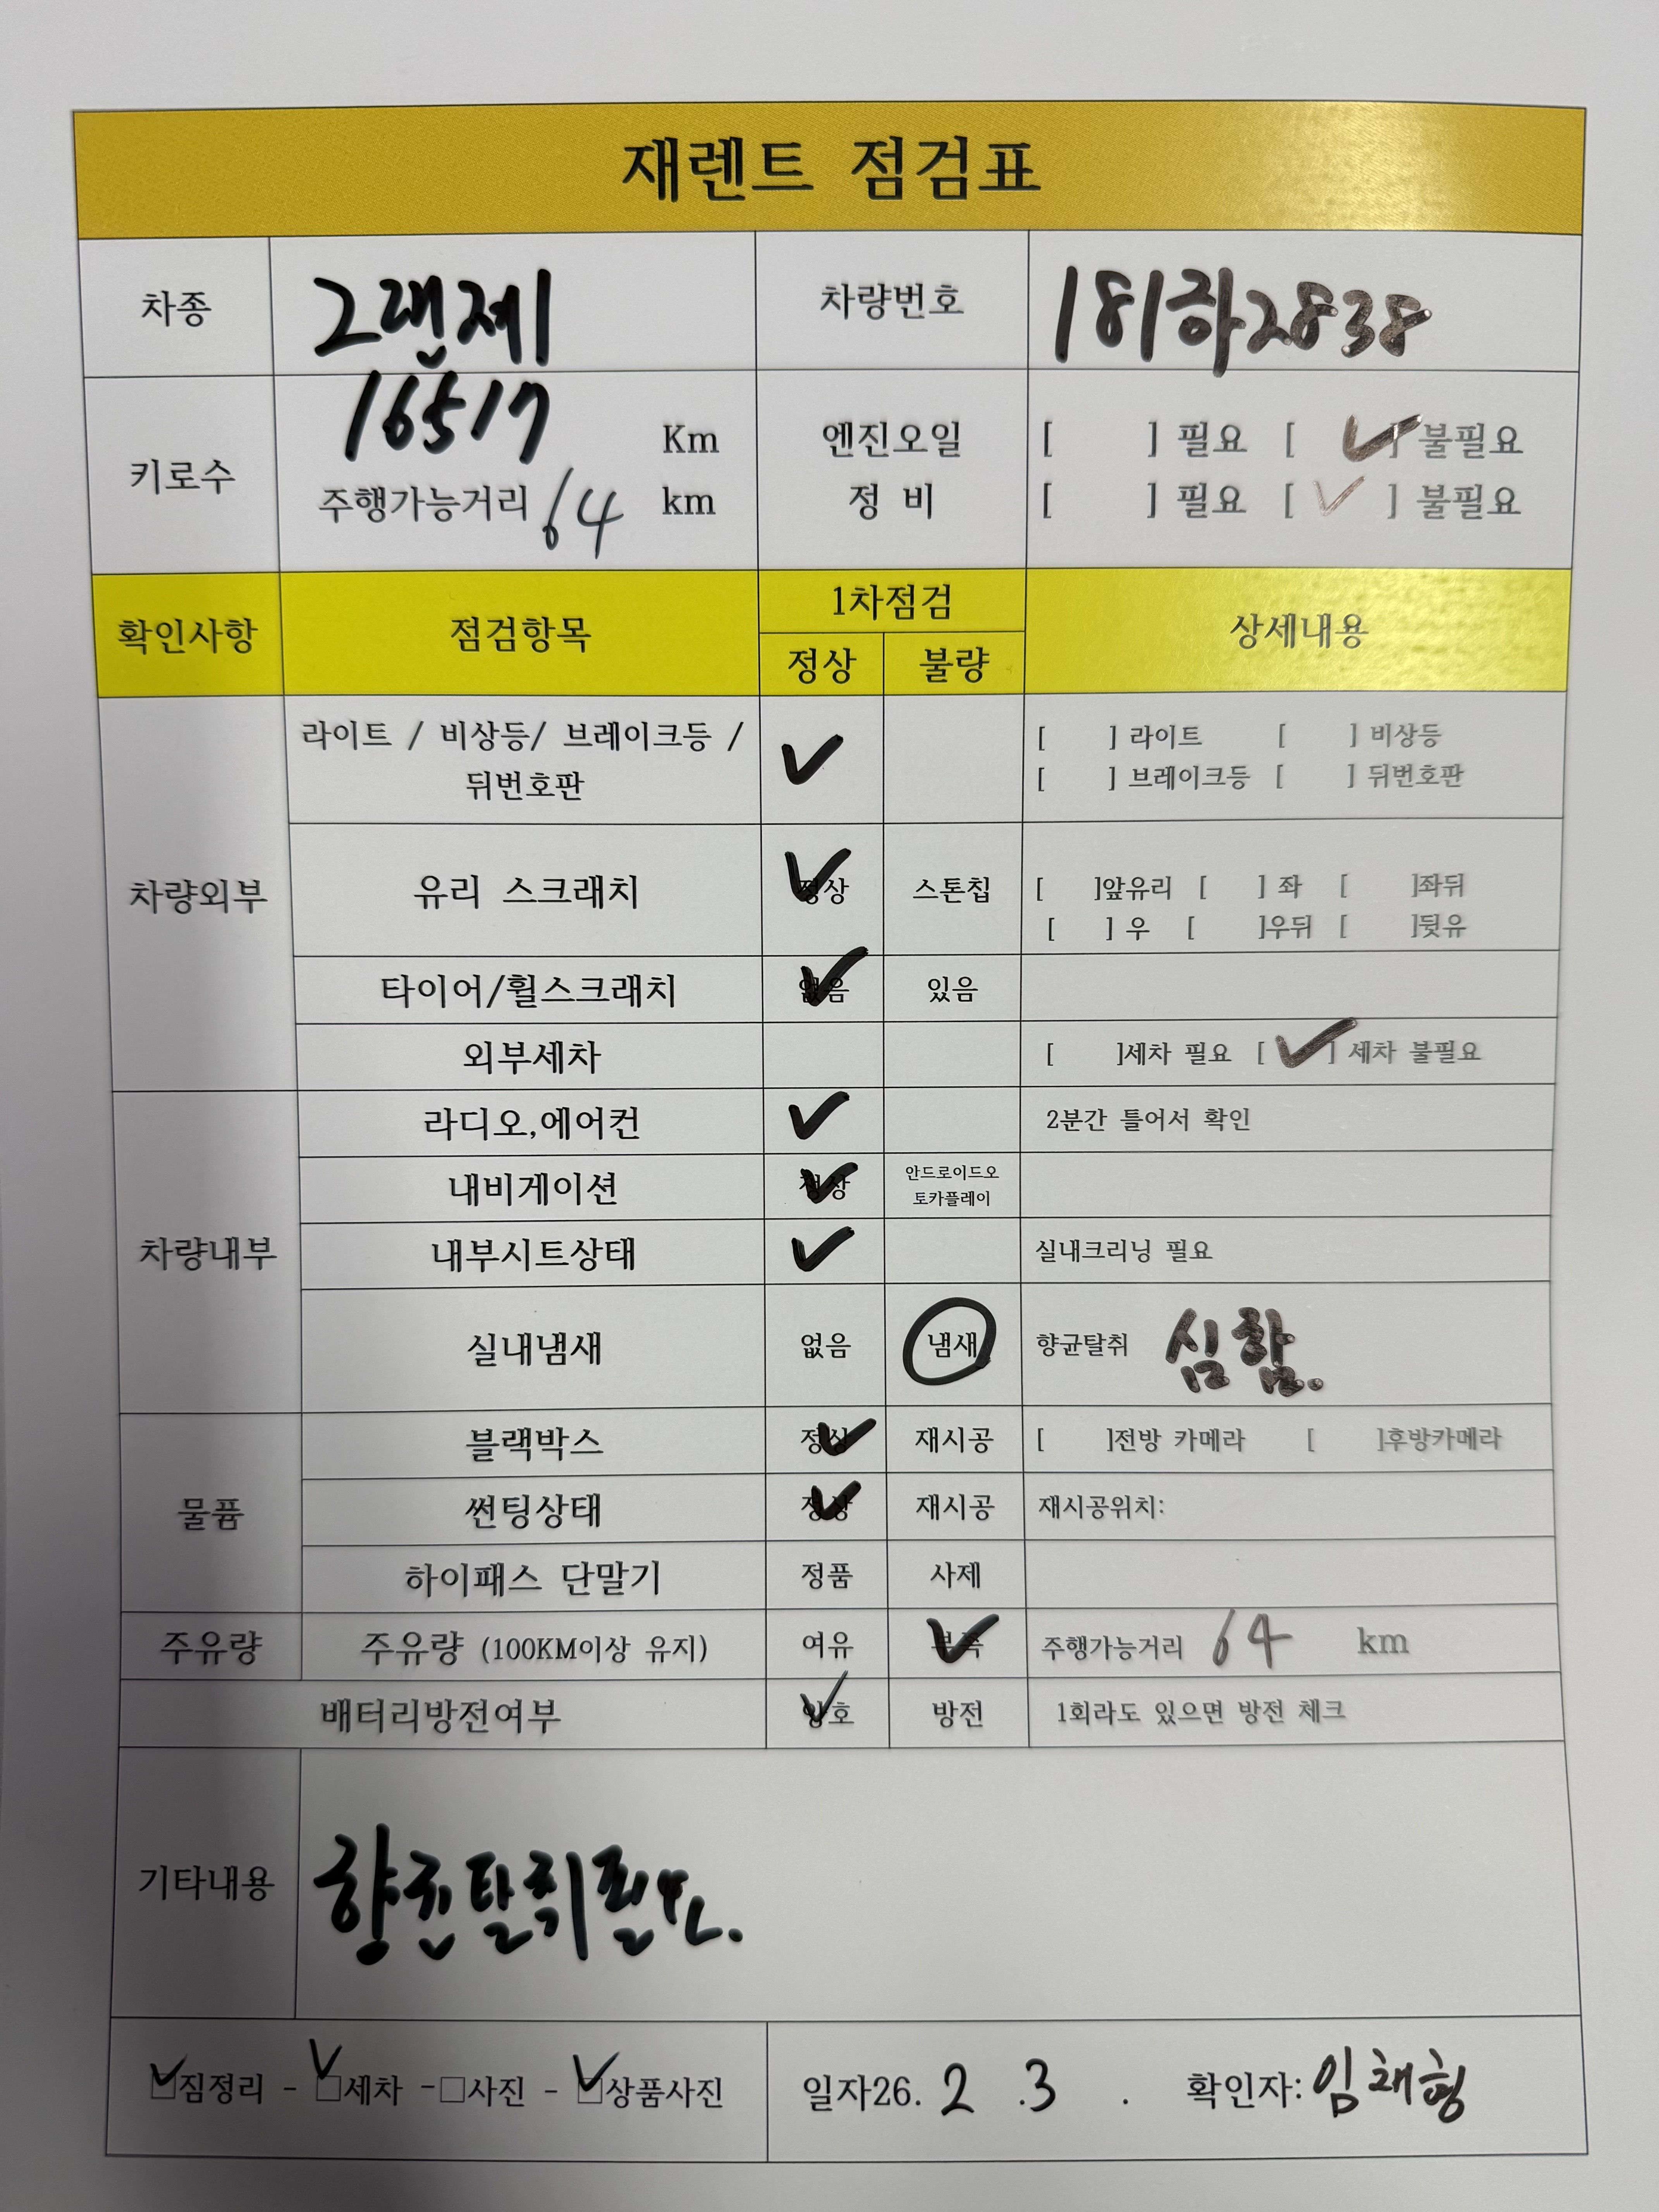 재렌트 점검표
차종 그랜저 차량번호 181하2838
키로수 16517 Km 엔진오일 [ ] 필요 [ ✓ ] 불필요
주행가능거리 64 km 정 비 [ ] 필요 [ ✓ ] 불필요
확인사항 점검항목 1차점검 상세내용
정상 불량
차량외부
라이트 / 비상등/ 브레이크등 / ✓ [ ] 라이트 [ ] 비상등
뒤번호판 [ ] 브레이크등 [ ] 뒤번호판
유리 스크래치 ✓ 정상 스톤칩 [ ]앞유리 [ ] 좌 [ ]좌뒤
[ ] 우 [ ]우뒤 [ ]뒷유
타이어/휠스크래치 ✓ 없음 있음
외부세차 [ ]세차 필요 [ ✓ ] 세차 불필요
차량내부
라디오,에어컨 ✓ 2분간 틀어서 확인
내비게이션 ✓ 정상 안드로이드오
토카플레이
내부시트상태 ✓ 실내크리닝 필요
실내냄새 없음 냄새 향균탈취 심함.
물품
블랙박스 ✓ 정상 재시공 [ ]전방 카메라 [ ]후방카메라
썬팅상태 ✓ 정상 재시공 재시공위치:
하이패스 단말기 정품 사제
주유량 주유량 (100KM이상 유지) 여유 ✓ 부족 주행가능거리 64 km
배터리방전여부 ✓ 양호 방전 1회라도 있으면 방전 체크
기타내용 향균탈취필요.
☑짐정리 - ☑세차 -□사진 - ☑상품사진 일자26. 2 .3 . 확인자: 임채형